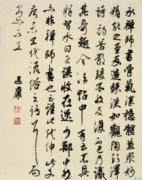 永禪師書骨氣深穩體兼眾妙
精能之至反造疎淡如觀陶彭澤
詩初若散緩不收反覆不已乃識
其奇趣今法帖中有云不具釋
智永白者誤收在逸少部中然
亦非禪師書也云謹此代申此乃
唐末五代流俗之語耳而書
亦不工